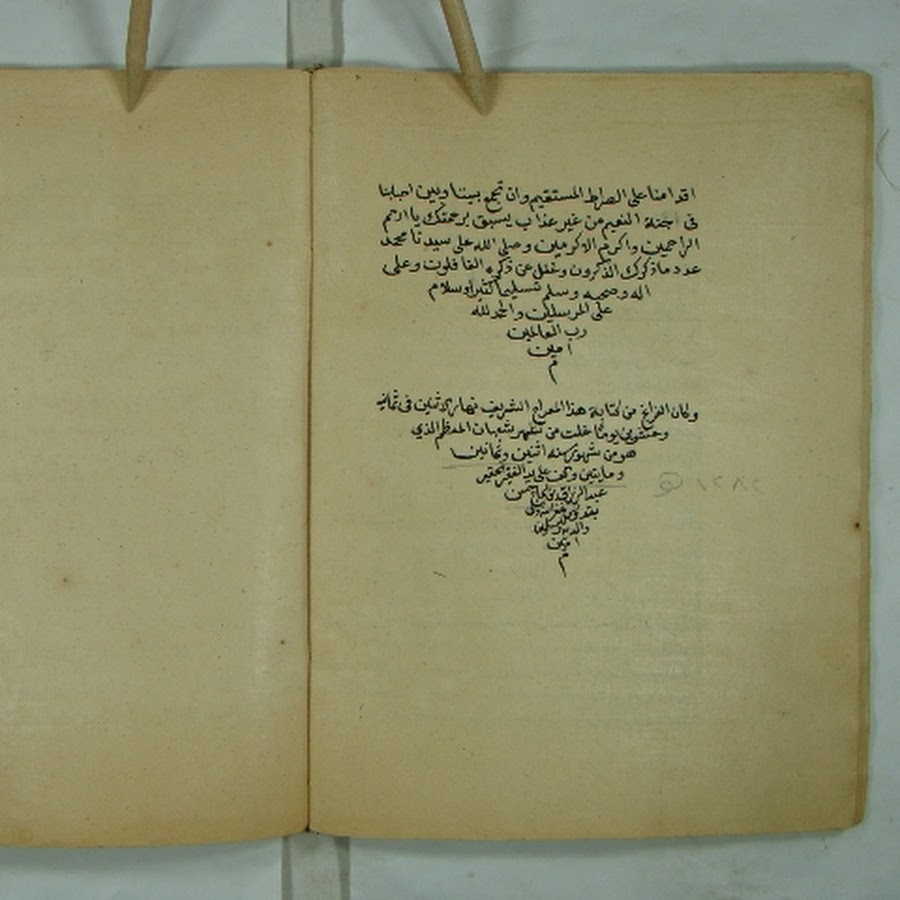 اقدامنا على الصراط المستقيم وان تجمع بيننا وبين احبابنا
فى اجنة النعيم من غير عذاب يسبق برحمتك يا ارحم
الراحمين واكرم الاكرمين وصلى الله على سيدنا محمد
عدد ماذكرك الذكرون وغفل عن ذكره الغافلون وعلى
اله وصحبه وسلم تسليما كثيرا وسلام
على المرسلين والحمد لله
رب العالمين
امين
م
وكان الفراغ من كتابة هذا المعراج الشريف نهار الاثنين فى ثمانيه
وعشرين يوما خلت من شهر شعبان المعظم الذي
هو من شهور سنه اثنين وثمانين
ومايتين والف على يد الفقير الحقير
عبد الرزاق
غفر الله
امين
م
١٢٨٢